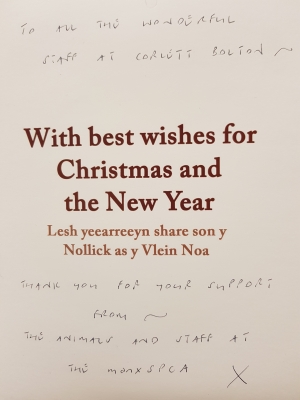 TO ALL THE WONDERFUL
STAFF AT CORLETT BOLTON ~
With best wishes for
Christmas and
the New Year
Lesh yeearreeyn share son y
Nollick as y Vlein Noa
THANK YOU FOR YOUR SUPPORT
FROM ~
THE ANIMALS AND STAFF AT
THE manxSPCA X